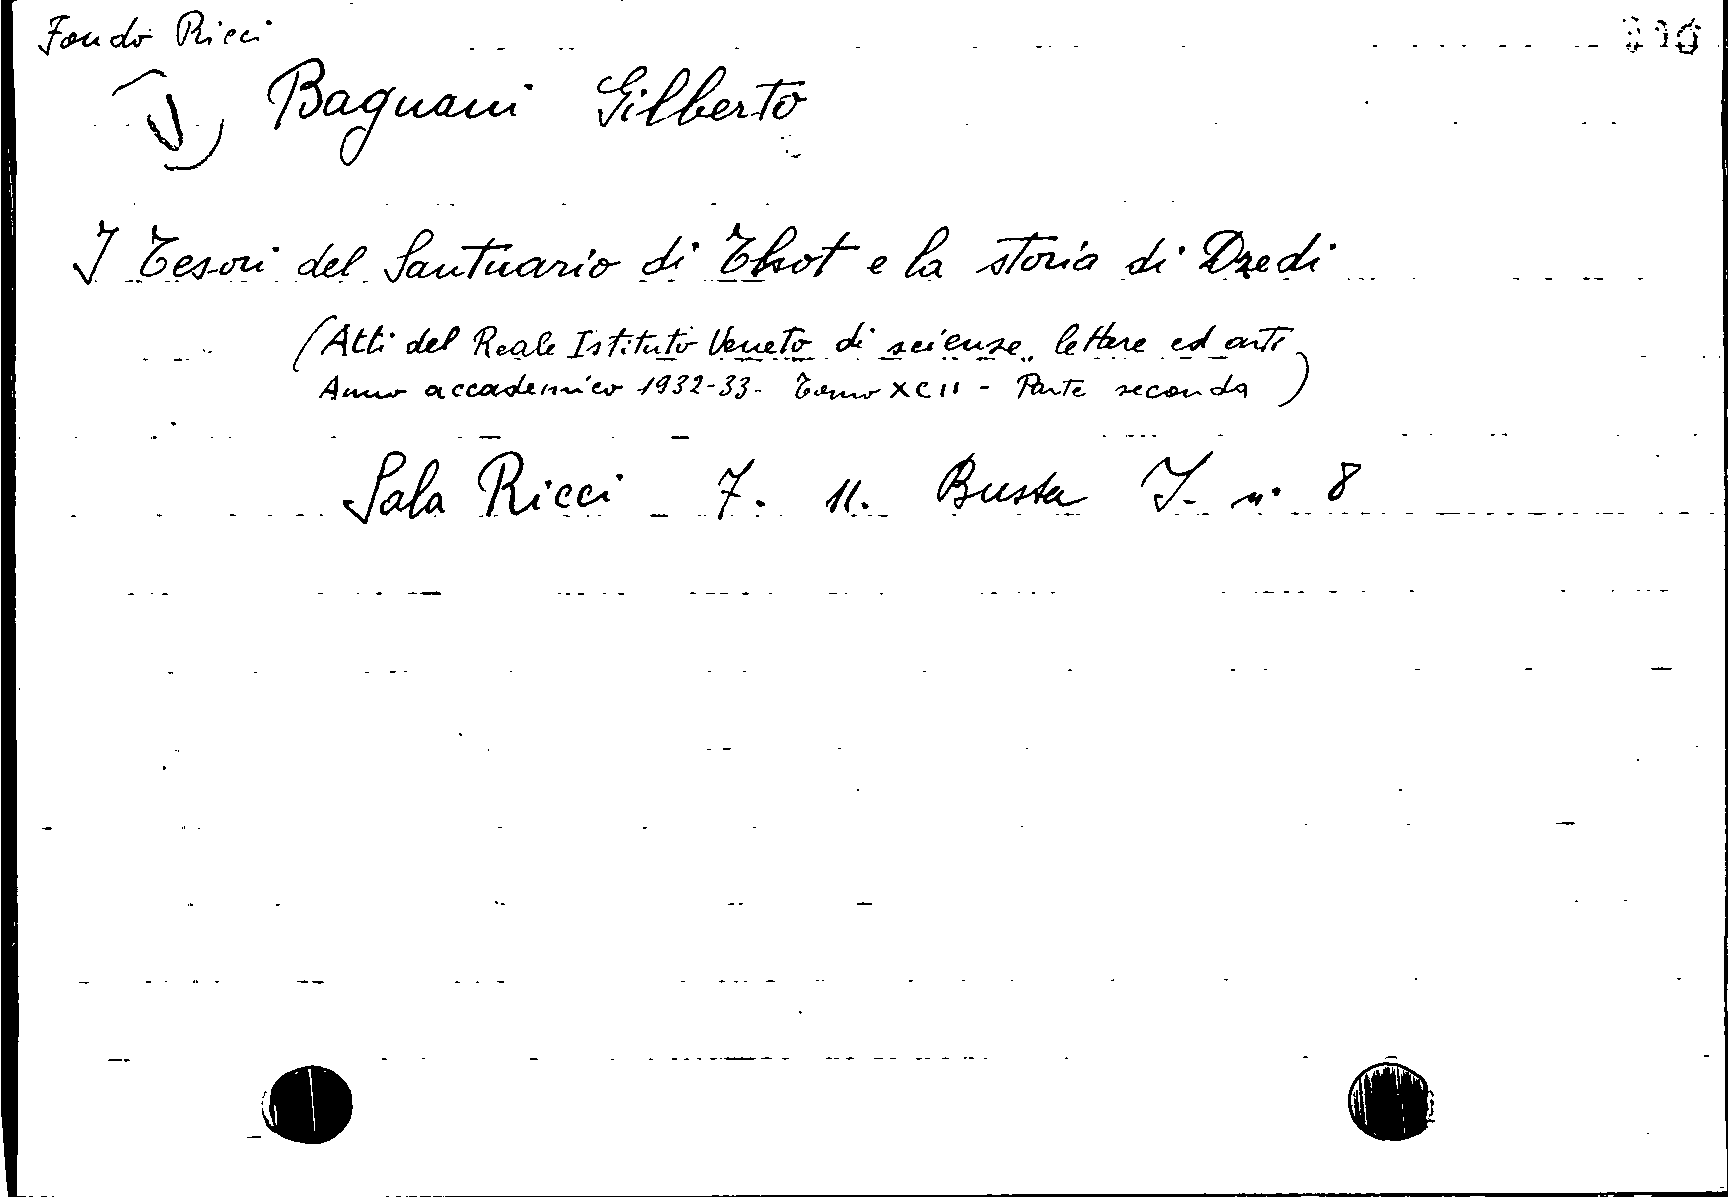 Fondo Ricci
Bagnani Gilberto
I Tesori del Santuario di Thot e la storia di Dzedi
(Atti del Reale Istituto Veneto di scienze, lettere ed arti
Anno accademico 1932-33. Tomo XCII - Parte seconda)
Sala Ricci 7. 11. Busta I. n. 8